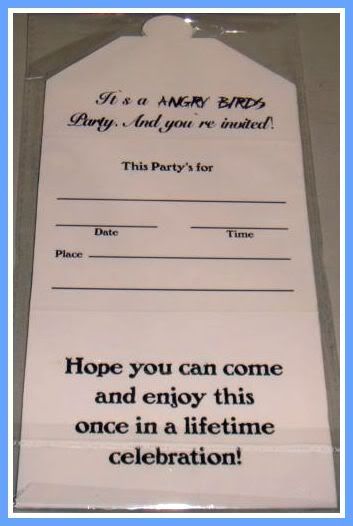 It's a ANGRY BIRDS
Party. And you're invited!
This Party's for
Date Time
Place
Hope you can come
and enjoy this
once in a lifetime
celebration!